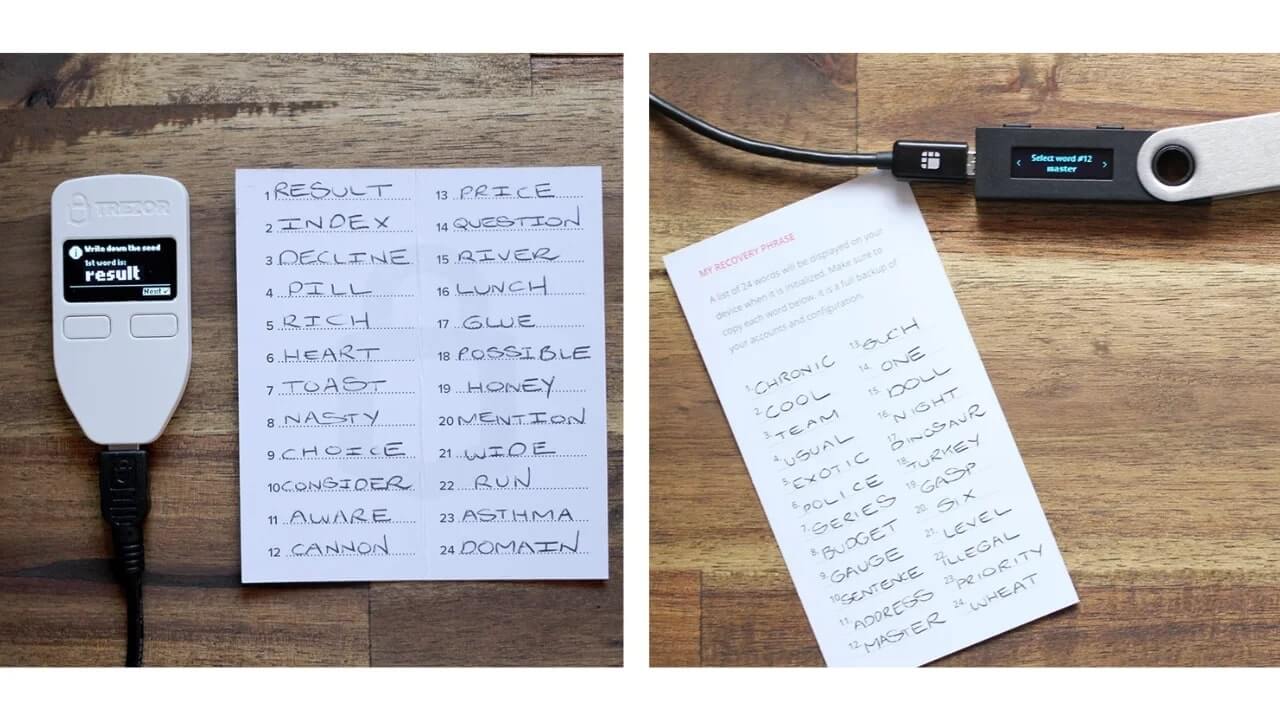 TREZOR
Write down the seed
1st word is:
result
Next
1 RESULT
2 INDEX
3 DECLINE
4 PILL
5 RICH
6 HEART
7 TOAST
8 NASTY
9 CHOICE
10 CONSIDER
11 AWARE
12 CANNON
13 PRICE
14 QUESTION
15 RIVER
16 LUNCH
17 GLUE
18 POSSIBLE
19 HONEY
20 MENTION
21 WIDE
22 RUN
23 ASTHMA
24 DOMAIN
Select word #12
master
MY RECOVERY PHRASE
A list of 24 words will be displayed on your
device when it is initialized. Make sure to
copy each word below. It is a full backup of
your accounts and configuration.
1. CHRONIC
2. COOL
3. TEAM
4. USUAL
5. EXOTIC
6. POLICE
7. SERIES
8. BUDGET
9. GAUGE
10. SENTENCE
11. ADDRESS
12. MASTER
13. SUCH
14. ONE
15. DOLL
16. NIGHT
17. DINOSAUR
18. TURKEY
19. GASP
20. SIX
21. LEVEL
22. ILLEGAL
23. PRIORITY
24. WHEAT